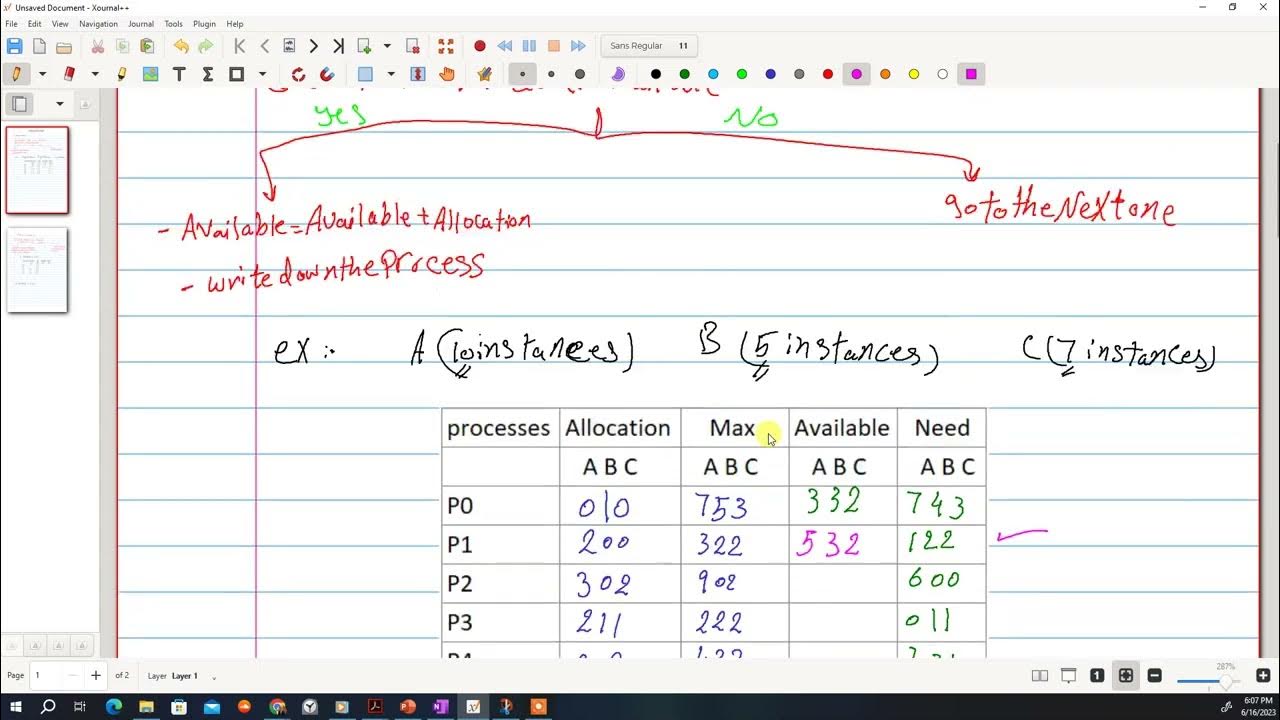 Unsaved Document - Xournal++
File Edit View Navigation Journal Tools Plugin Help
Sans Regular 11
Yes No
- Available = Available + Allocation
go to the Next one
- write down the Process
ex :- A (10 instances) B (5 instances) C (7 instances)
processes Allocation Max Available Need
A B C A B C A B C A B C
P0 010 753 332 743
P1 200 322 532 122
P2 302 902 600
P3 211 222 011
Page 1 of 2 Layer Layer 1
287%
6:07 PM
6/16/2023